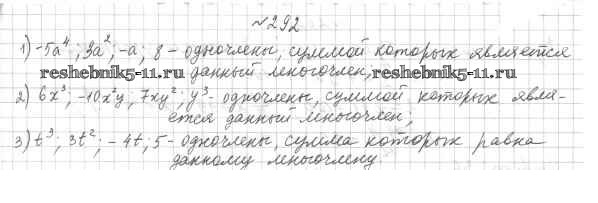 №292
1) -5a⁴; 3a²; -a; 8 - одночлены, суммой которых является
данный многочлен,
reshebnik5-11.ru reshebnik5-11.ru
2) 6x³; -10x²y; 7xy²; y³ - одночлены, суммой которых явля-
ется данный многочлен;
3) t³; 3t²; -4t; 5 - одночлены, сумма которых равна
данному многочлену